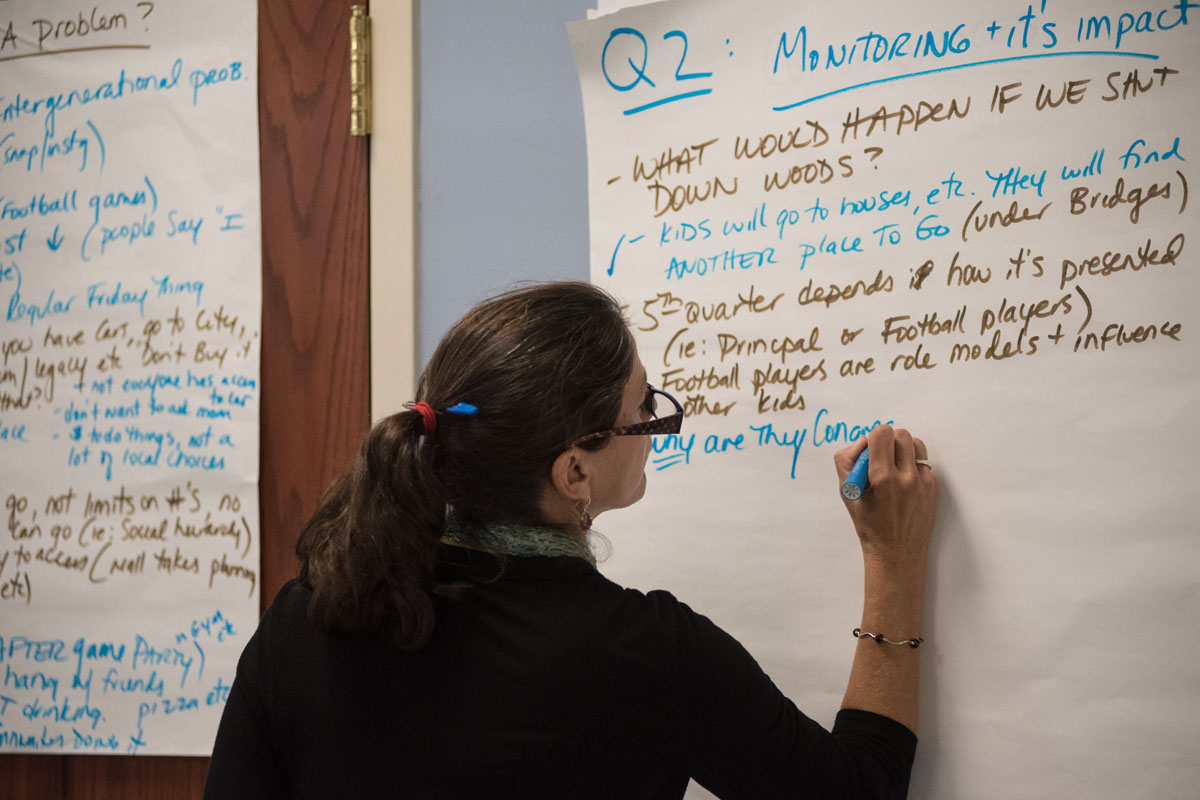 A Problem?
Intergenerational prob.
(snap/instg)
(Football games)
↓ (people say "I
Regular Friday Thing
you have cars, go to City,
/legacy etc Don't Buy it
+ not everyone has access
to car
- don't want to ask mom
- $ to do things, not a
lot of local choices
go, not limits on #'s, no
can go (ie: Social hierarchy)
to access (mall takes planning
etc)
AFTER game Party)
hang w/ friends
drinking. pizza etc
doing it
Q2: MONITORING + it's impact
- WHAT WOULD HAPPEN IF WE SHUT
DOWN WOODS?
- KIDS will go to houses, etc. They will find
ANOTHER place To Go (under Bridges)
5th Quarter depends if how it's presented
(ie: Principal or Football players)
Football players are role models + influence
other kids
why are They